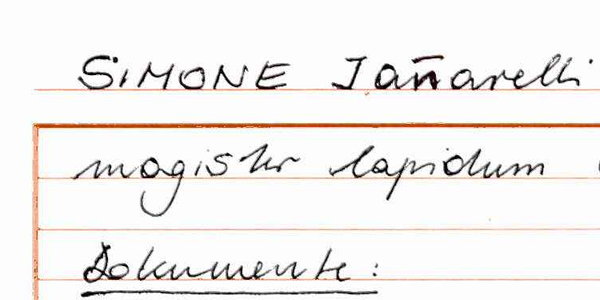 SIMONE Jan̄arelli
magister lapidum
Dokumente: